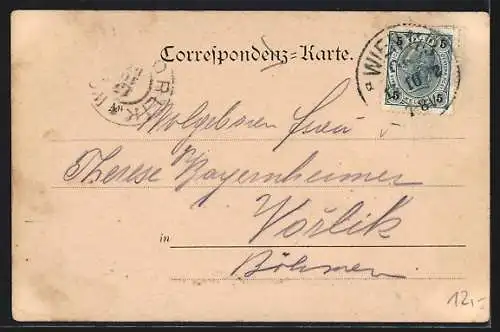 Correspondenz-Karte.
WIEN
5 5
5 5
Wolgeboren Frau
Therese Bayernheimer
in Vořlik
Böhmen
12,-